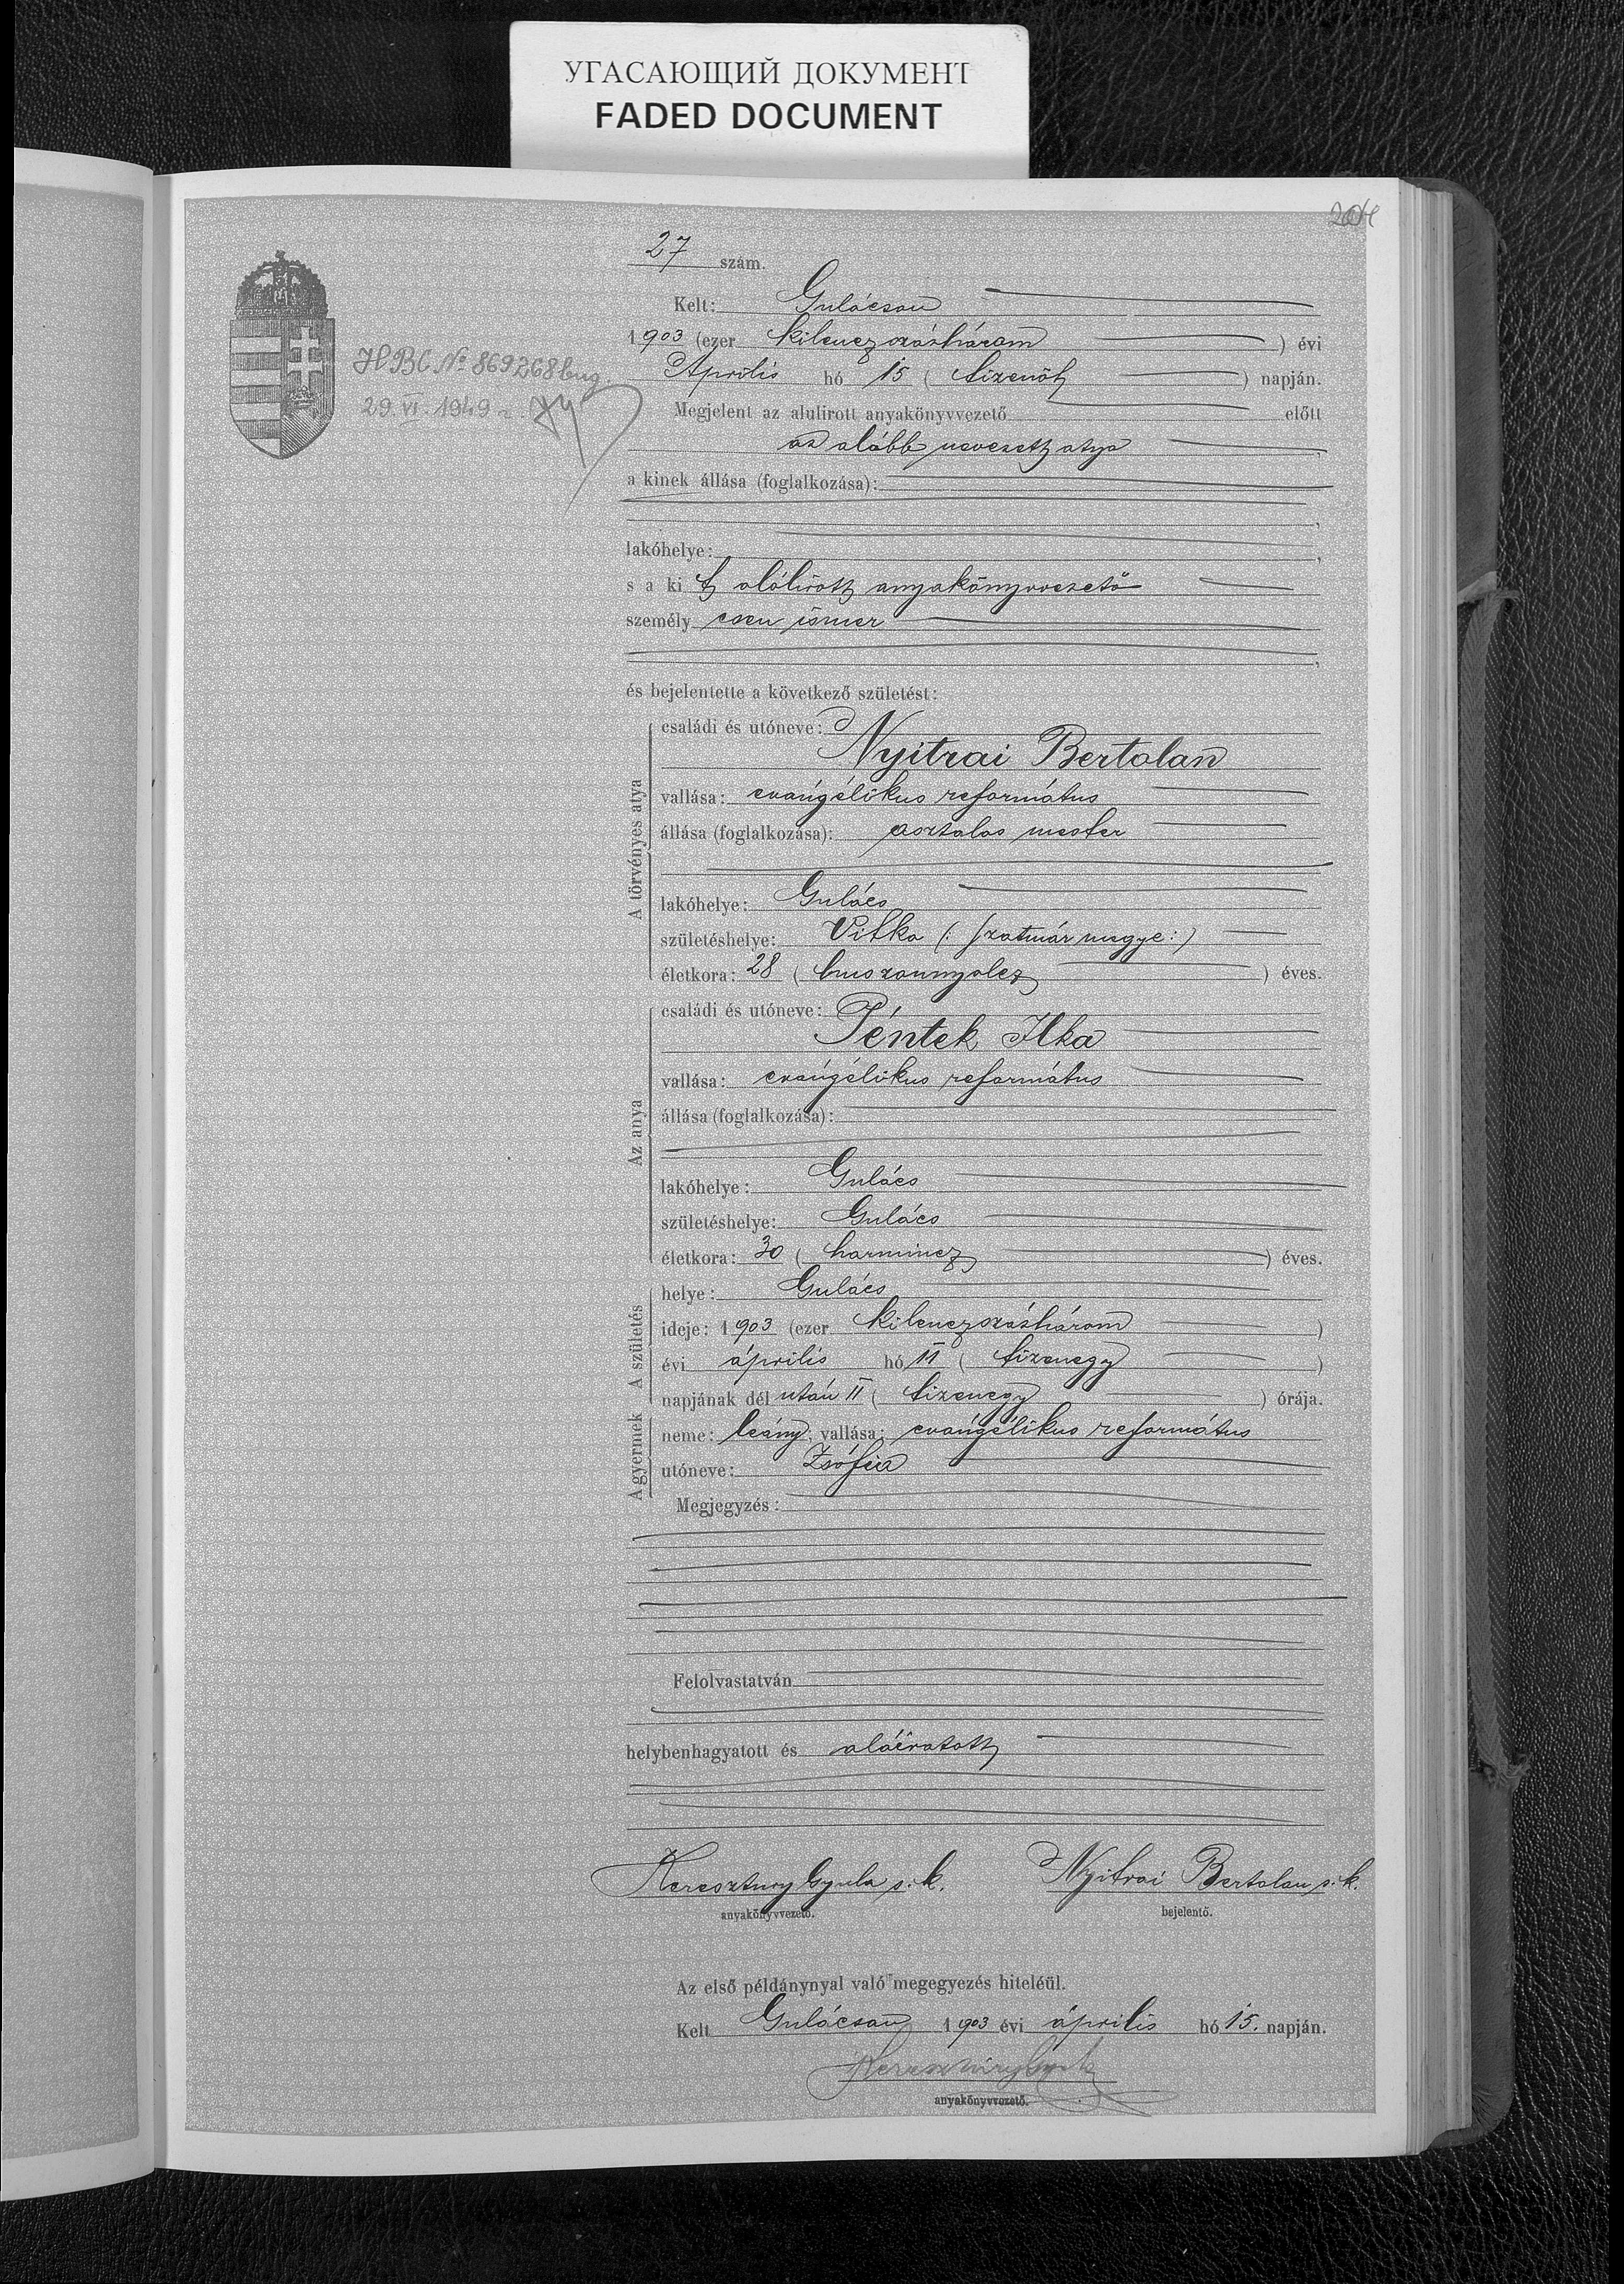 УГАСАЮЩИЙ ДОКУМЕНТ
FADED DOCUMENT
204
27 szám.
Kelt: Gulácson
1903 (ezer kilenczszázhárom) évi
Április hó 15 (tizenöt) napján.
НВС № 869268
29.VI.1949 г.
Megjelent az alulirott anyakönyvvezető előtt
az alább nevezett atya,
a kinek állása (foglalkozása):
,
lakóhelye: ,
s a ki t alólirott anyakönyvvezető
személyesen ismer
,
és bejelentette a következő születést:
A törvényes atya
családi és utóneve:
Nyitrai Bertalan
vallása: evangélikus református
állása (foglalkozása): asztalos mester
lakóhelye: Gulács
születéshelye: Vitka (: Szatmár megye :)
életkora: 28 (huszonnyolcz) éves.
Az anya
családi és utóneve:
Péntek Ilka
vallása: evangélikus református
állása (foglalkozása):
lakóhelye: Gulács
születéshelye: Gulács
életkora: 30 (harmincz) éves.
A születés
helye: Gulács
ideje: 1903 (ezer kilenczszázhárom)
évi április hó 11 (tizenegy)
napjának dél után 11 (tizenegy) órája.
A gyermek
neme: leány; vallása: evangélikus református
utóneve: Zsófia
Megjegyzés:
Felolvastatván
helybenhagyatott és aláiratott
Keresztury Gyula s.k. Nyitrai Bertalan s.k.
anyakönyvvezető. bejelentő.
Az első példánynyal való megegyezés hiteléül.
Kelt Gulácson 1903 évi április hó 15. napján.
Keresztury Gyula
anyakönyvvezető.